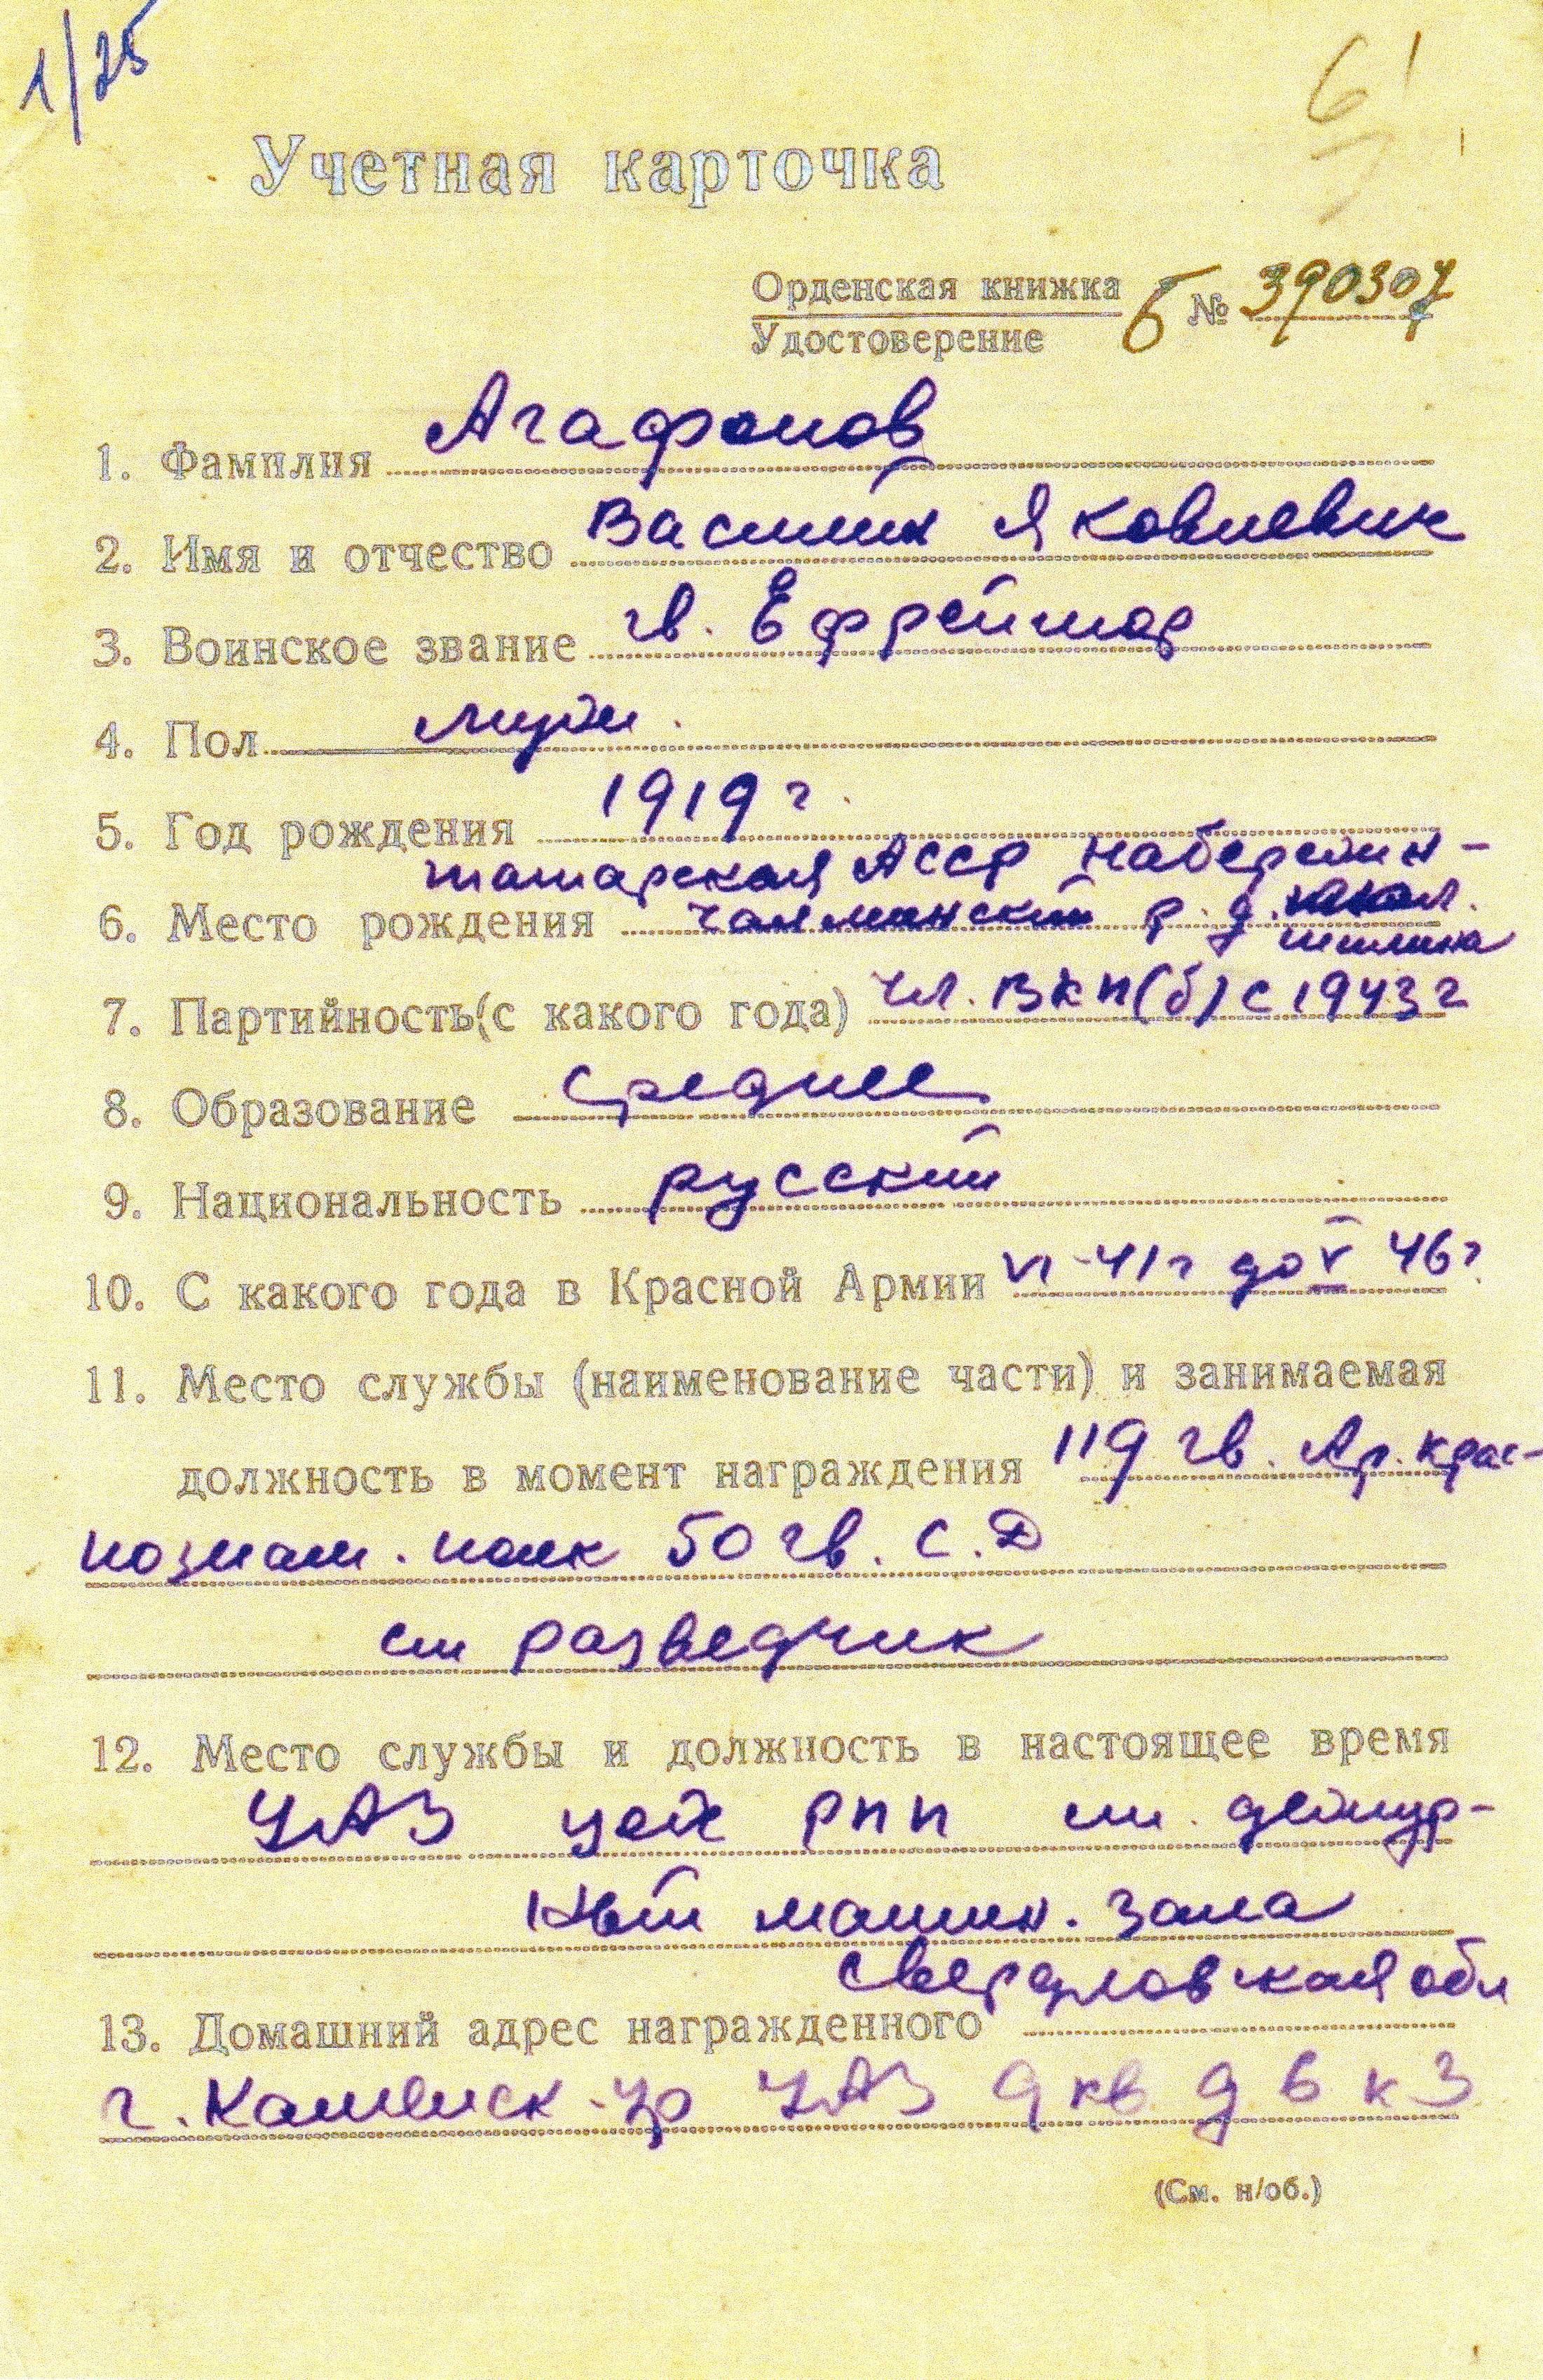 1/25
6
Учетная карточка
Орденская книжка
Удостоверение
Б № 390307
1. Фамилия Агафонов
2. Имя и отчество Василий Яковлевич
3. Воинское звание гв. Ефрейтор
4. Пол муж.
5. Год рождения 1919 г.
татарская АССР Набережн-
6. Место рождения челнинский р. д.
7. Партийность (с какого года) чл. ВКП(б) с 1943 г
8. Образование среднее
9. Национальность русский
10. С какого года в Красной Армии VI-41г до V 46г.
11. Место службы (наименование части) и занимаемая
должность в момент награждения 119 гв. Ар. Крас-
нознам. полк 50 гв. С.Д
ст разведчик
12. Место службы и должность в настоящее время
УАЗ цех РПП ст. дежур-
ный машин. зала
Свердловская обл
13. Домашний адрес награжденного
г. Каменск-Ур УАЗ 9 кв д 6 к 3
(См. н/об.)